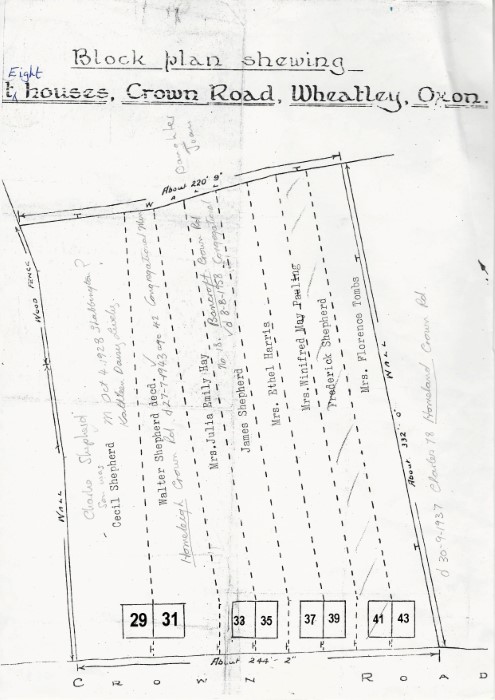 Block plan shewing
Eight
houses, Crown Road, Wheatley, Oxon.
Daughter
Joan
About 220' 9"
W A L L
WOOD FENCE
WALL
WALL
About 332'. 0"
Charles Shepherd
Son was
Cecil Shepherd
m Oct 4 1928
Walter Shepherd decd.
Homeleigh Crown Rd d 27-7-1943 age 42 Congregational
Mrs. Julia Emily Hay
No 18. Bancroft Crown Rd
d 8-8-1958 Congregational
James Shepherd
Mrs. Ethel Harris
Mrs. Winifred May Pauling
Frederick Shepherd
Mrs. Florence Tombs
d 30-9-1937 Charles 78 Homeland Crown Rd.
29 31 33 35 37 39 41 43
About 244'- 2"
CROWN ROAD